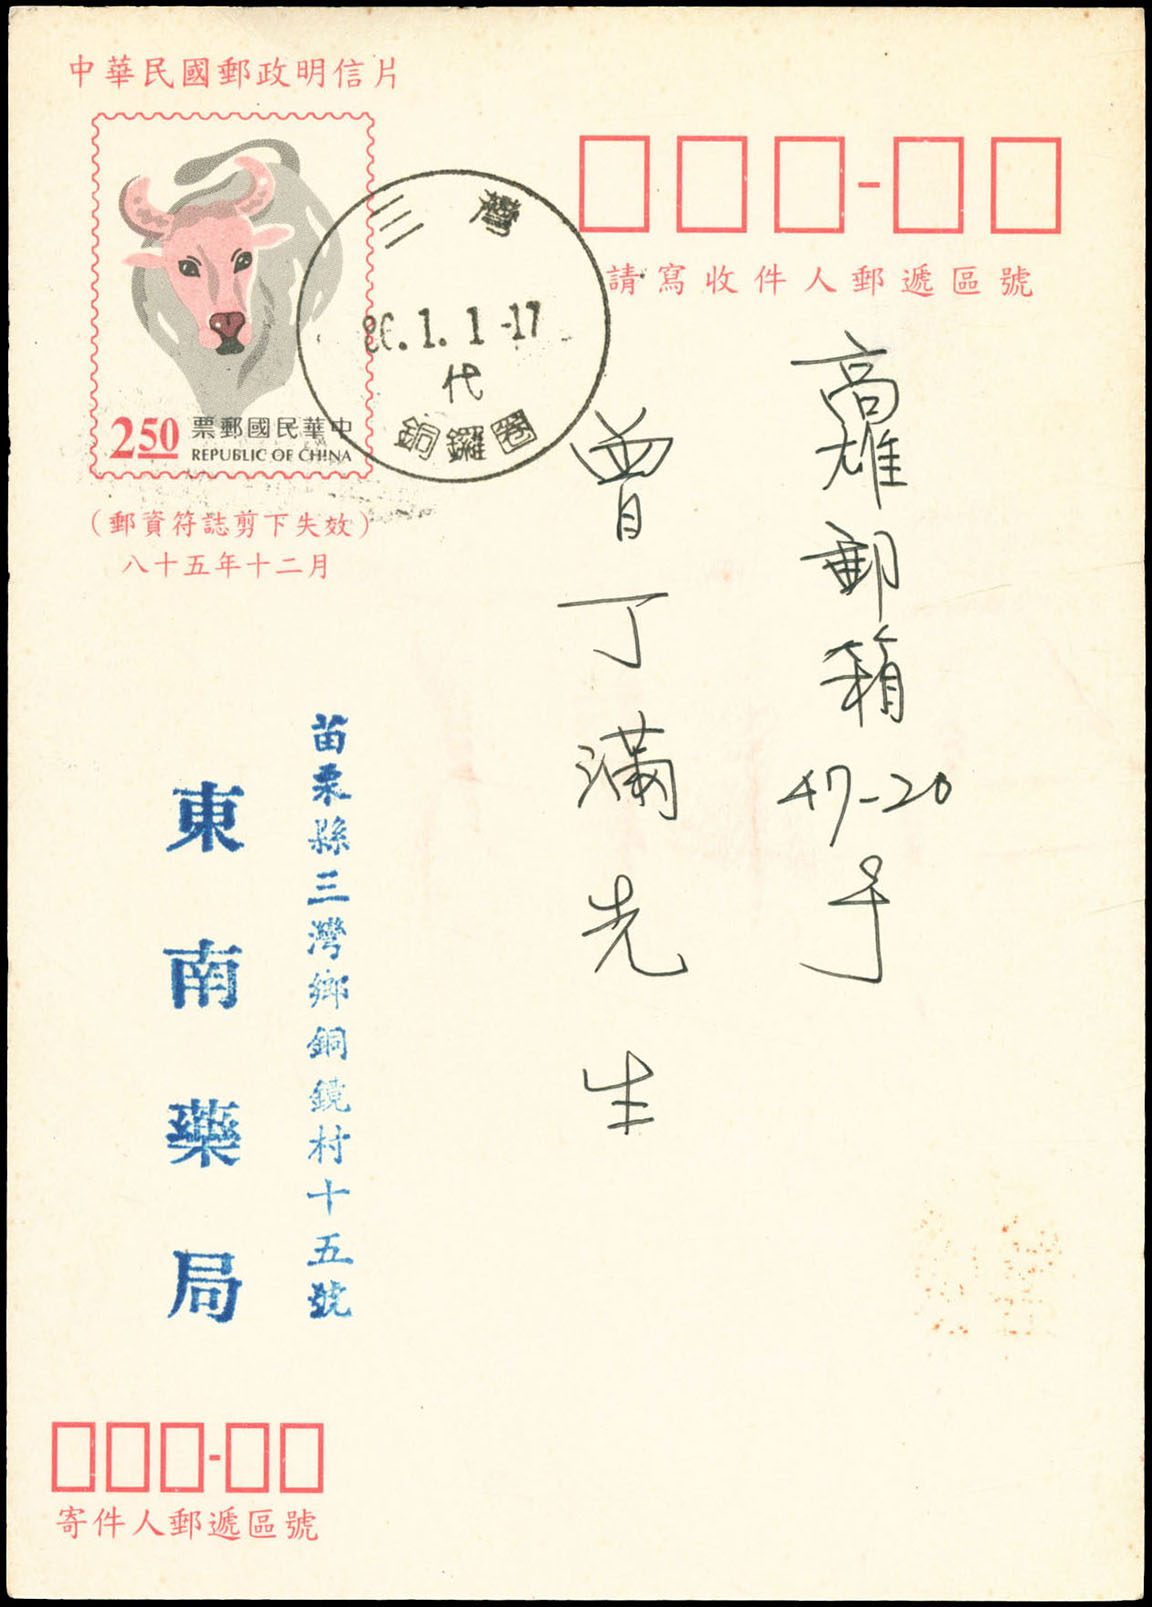 中華民國郵政明信片
2.50
中華民國郵票
REPUBLIC OF CHINA
三灣
86.1.1-17
代
銅鑼圈
(郵資符誌剪下失效)
八十五年十二月
請寫收件人郵遞區號
高雄郵箱47-20号
曾丁滿先生
苗栗縣三灣鄉銅鏡村十五號
東南藥局
寄件人郵遞區號